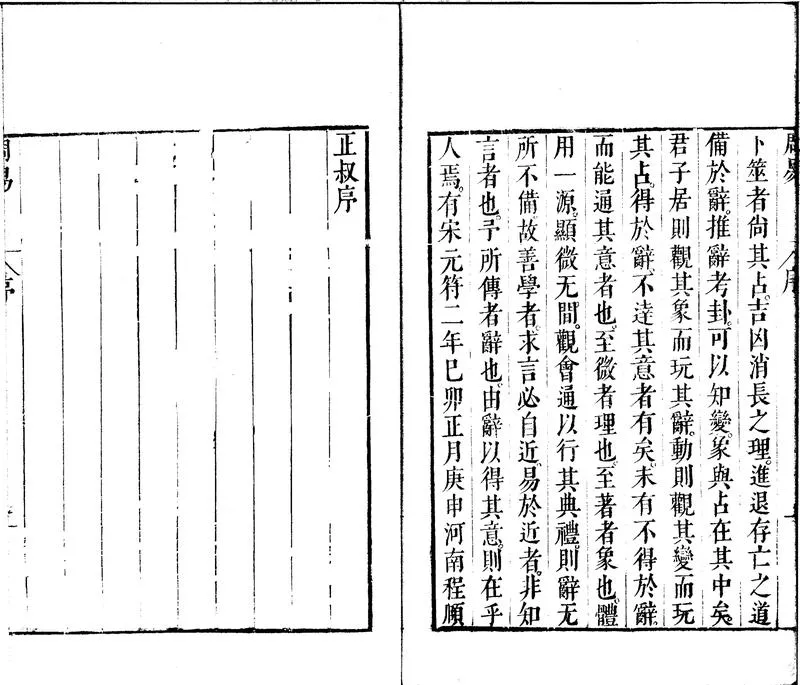 周易 序
卜筮者尙其占。吉凶消長之理。進退存亡之道
備於辭。推辭考卦。可以知變。象與占在其中矣。
君子居則觀其象而玩其辭。動則觀其變而玩
其占。得於辭。不達其意者有矣。未有不得於辭
而能通其意者也。至微者理也。至著者象也。體
用一源。顯微无間。觀會通以行其典禮。則辭无
所不備。故善學者。求言必自近。易於近者。非知
言者也。予所傳者辭也。由辭以得其意。則在乎
人焉。有宋元符二年巳卯正月庚申河南程頤
正叔序
周易 序